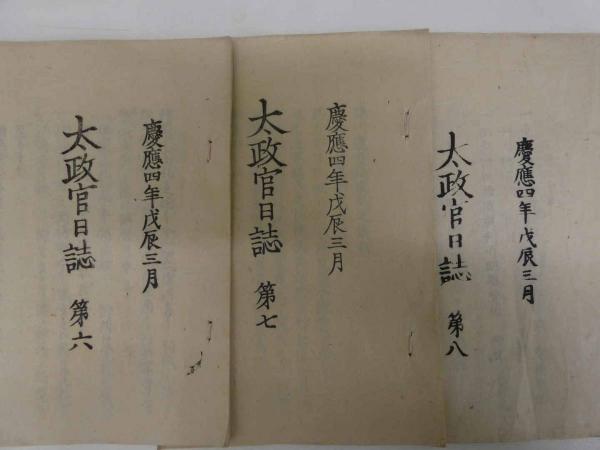 慶應四年戊辰三月
太政官日誌 第六
慶應四年戊辰三月
太政官日誌 第七
慶應四年戊辰三月
太政官日誌 第八